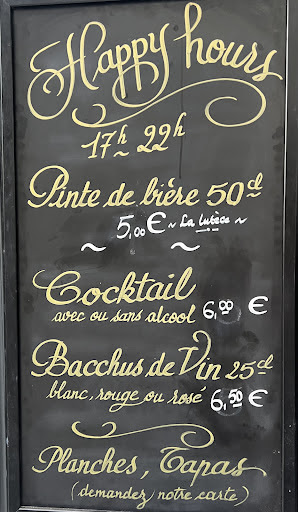 Happy hours
17h 22h
Pinte de bière 50cl
5,00 € ~ La lutèce ~
Cocktail
avec ou sans alcool 6,00 €
Bacchus de Vin 25cl
blanc, rouge ou rosé 6,50 €
Planches, Tapas
(demandez notre carte)